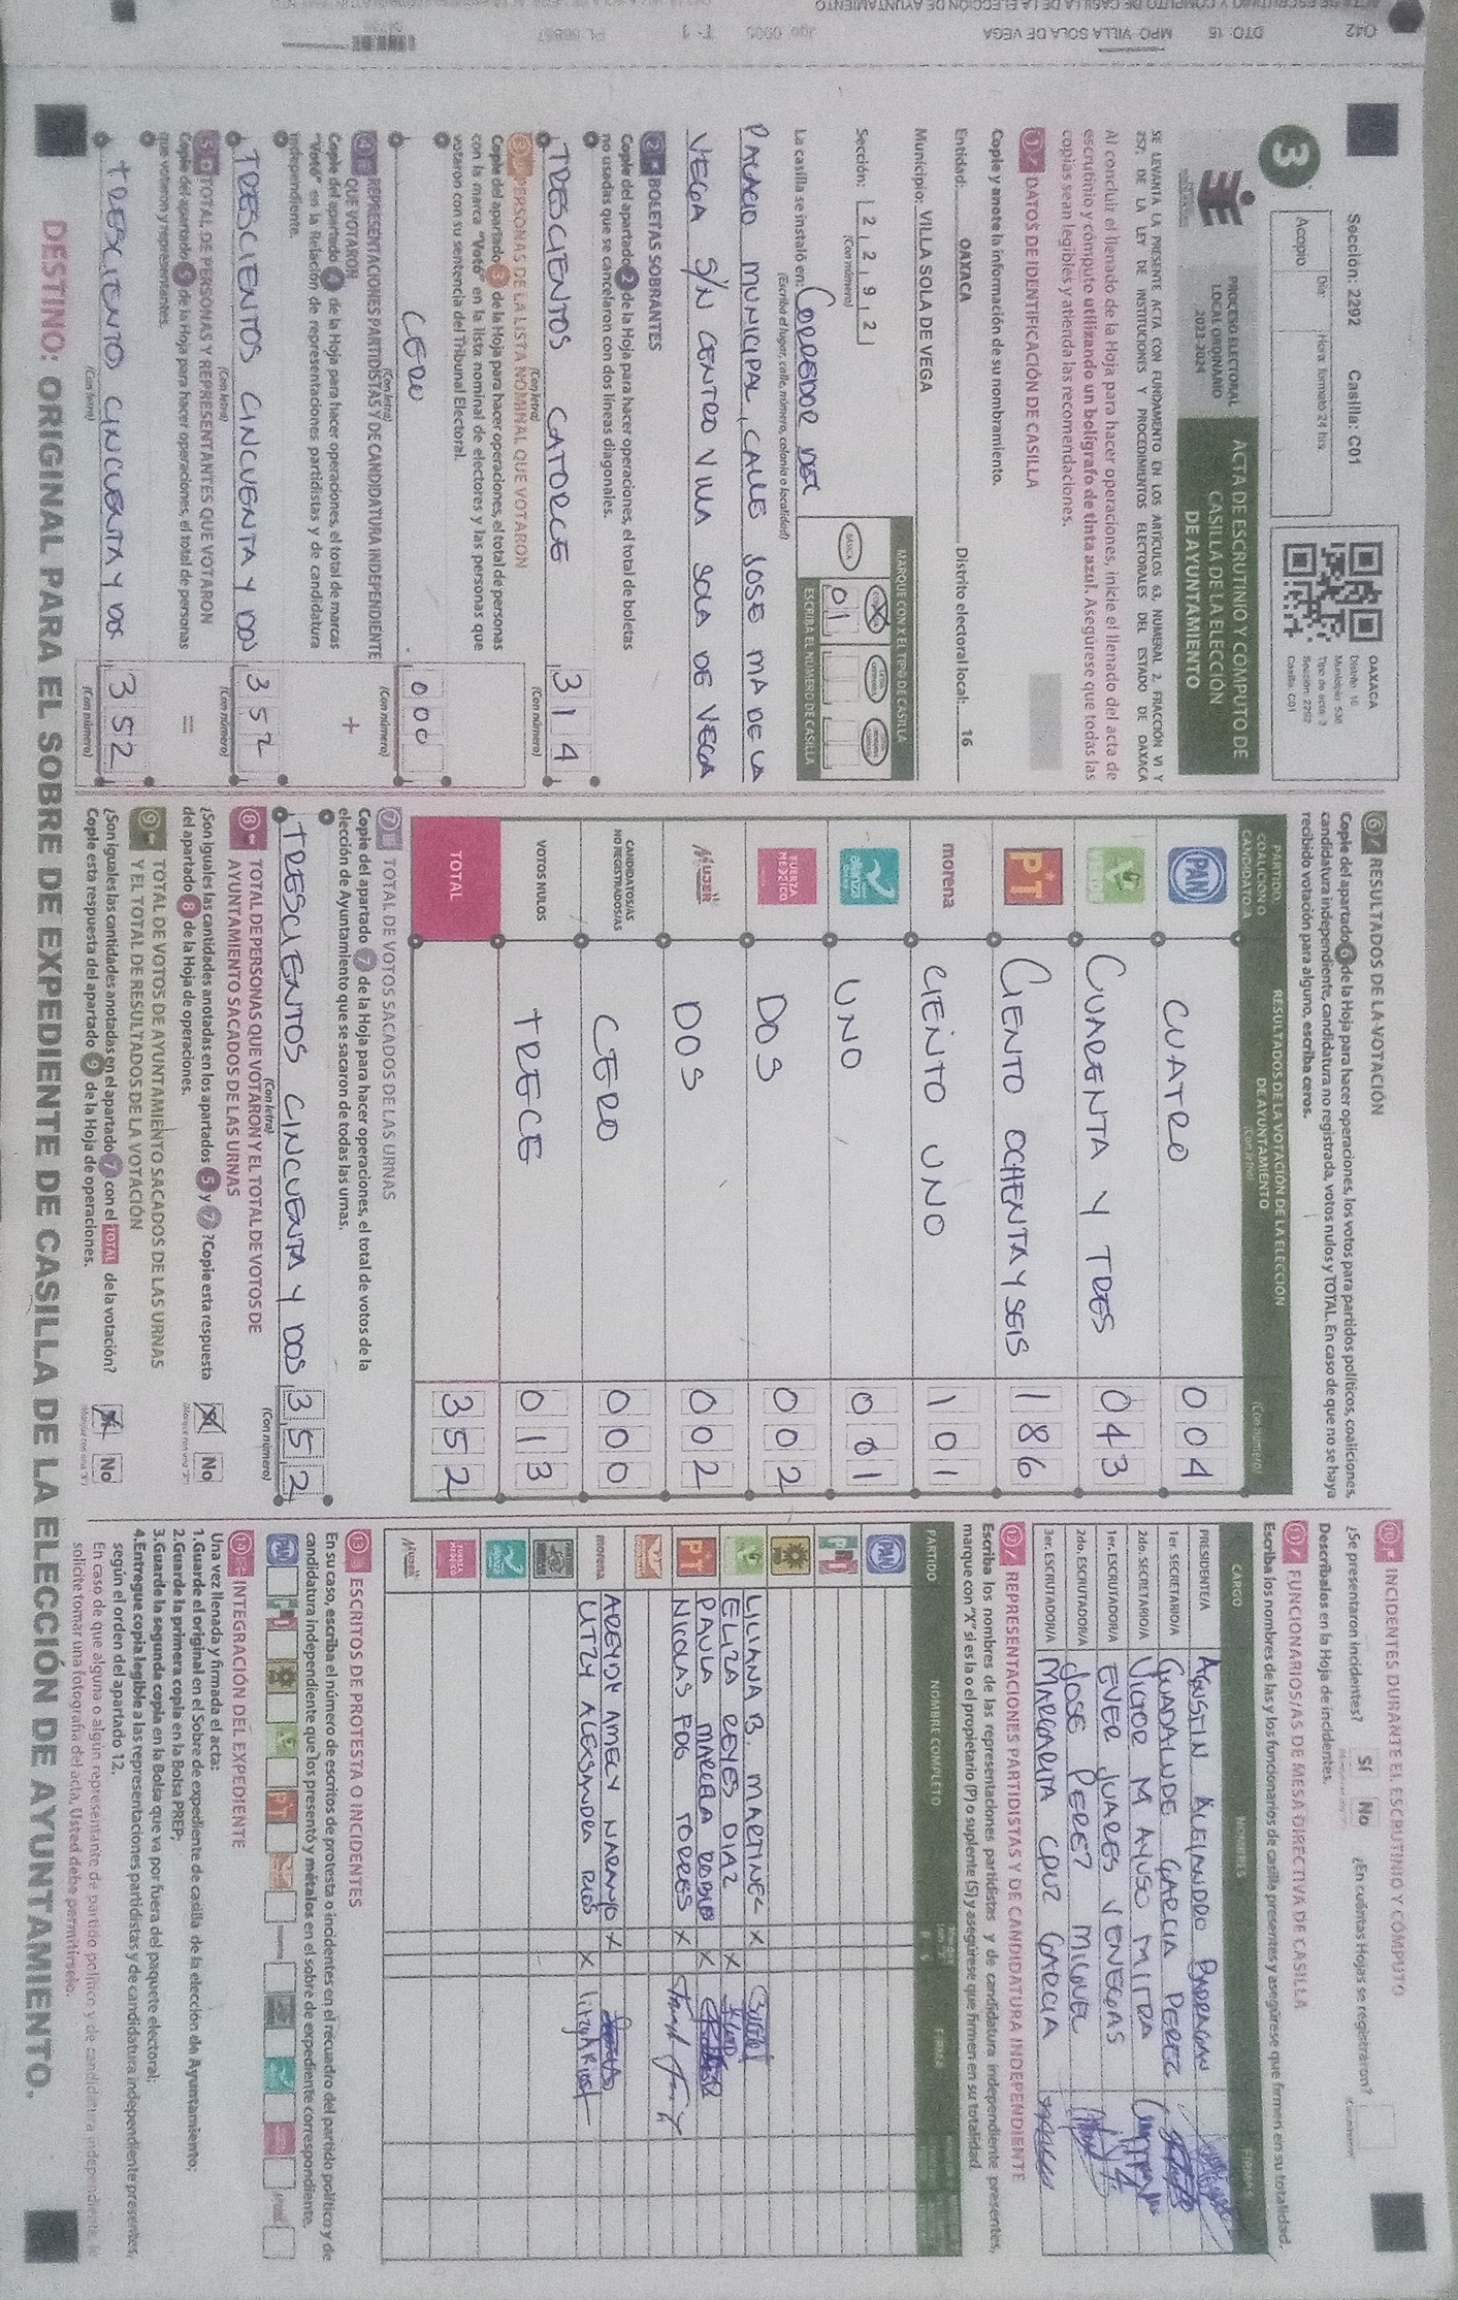 Sección: 2292 Casilla: C01
3
Día: Hora: formato 24 hrs.
Acopio
PROCESO ELECTORAL
LOCAL ORDINARIO
2023-2024
ACTA DE ESCRUTINIO Y CÓMPUTO DE
CASILLA DE LA ELECCIÓN
DE AYUNTAMIENTO
OAXACA
Distrito: 16
Tipo de acta: 3
Sección: 2292
Casilla: C01
SE LEVANTA LA PRESENTE ACTA CON FUNDAMENTO EN LOS ARTÍCULOS 63, NUMERAL 2, FRACCIÓN VI Y
257; DE LA LEY DE INSTITUCIONES Y PROCEDIMIENTOS ELECTORALES DEL ESTADO DE OAXACA
Al concluir el llenado de la Hoja para hacer operaciones, inicie el llenado del acta de
escrutinio y cómputo utilizando un bolígrafo de tinta azul. Asegúrese que todas las
copias sean legibles y atienda las recomendaciones.
1 DATOS DE IDENTIFICACIÓN DE CASILLA
Copie y anote la información de su nombramiento.
Entidad: OAXACA Distrito electoral local: 16
Municipio: VILLA SOLA DE VEGA
Sección: 2 2 9 2
(Con número)
MARQUE CON X EL TIPO DE CASILLA
BÁSICA
ESCRIBA EL NÚMERO DE CASILLA
01
La casilla se instaló en: CORREDOR DEL
(Escriba el lugar, calle, número, colonia o localidad)
PALACIO MUNICIPAL, CALLE JOSE MA DE LA
VEGA S/N CENTRO VILLA SOLA DE VEGA
2 BOLETAS SOBRANTES
Copie del apartado 2 de la Hoja para hacer operaciones, el total de boletas
no usadas que se cancelaron con dos líneas diagonales.
TRESCIENTOS CATORCE 314
(Con letra) (Con número)
3 PERSONAS DE LA LISTA NOMINAL QUE VOTARON
Copie del apartado 3 de la Hoja para hacer operaciones, el total de personas
con la marca "Votó" en la lista nominal de electores y las personas que
votaron con su sentencia del Tribunal Electoral.
CERO 000
(Con letra) (Con número)
4 REPRESENTACIONES PARTIDISTAS Y DE CANDIDATURA INDEPENDIENTE
QUE VOTARON
Copie del apartado 4 de la Hoja para hacer operaciones, el total de marcas
"Votó" en la Relación de representaciones partidistas y de candidatura
independiente.
+
TRESCIENTOS CINCUENTA Y DOS 352
(Con letra) (Con número)
5 TOTAL DE PERSONAS Y REPRESENTANTES QUE VOTARON
Copie del apartado 5 de la Hoja para hacer operaciones, el total de personas
que votaron y representantes.
=
TRESCIENTO CINCUENTA Y DOS 352
(Con letra) (Con número)
6 RESULTADOS DE LA VOTACIÓN
Copie del apartado 6 de la Hoja para hacer operaciones, los votos para partidos políticos, coaliciones,
candidatura independiente, candidatura no registrada, votos nulos y TOTAL. En caso de que no se haya
recibido votación para alguno, escriba ceros.
PARTIDO, COALICIÓN O CANDIDATO/A
RESULTADOS DE LA VOTACIÓN DE LA ELECCIÓN
DE AYUNTAMIENTO
(Con letra) (Con número)
PAN CUATRO 004
CUARENTA Y TRES 043
PT CIENTO OCHENTA Y SEIS 186
morena CIENTO UNO 101
UNO 001
FUERZA MÉXICO DOS 002
MUJER DOS 002
CANDIDATOS/AS NO REGISTRADOS/AS CERO 000
VOTOS NULOS TRECE 013
TOTAL 352
7 TOTAL DE VOTOS SACADOS DE LAS URNAS
Copie del apartado 7 de la Hoja para hacer operaciones, el total de votos de la
elección de Ayuntamiento que se sacaron de todas las urnas.
TRESCIENTOS CINCUENTA Y DOS 352
(Con letra) (Con número)
8 TOTAL DE PERSONAS QUE VOTARON Y EL TOTAL DE VOTOS DE
AYUNTAMIENTO SACADOS DE LAS URNAS
¿Son iguales las cantidades anotadas en los apartados 5 y 7? Copie esta respuesta
del apartado 8 de la Hoja de operaciones.
No
9 TOTAL DE VOTOS DE AYUNTAMIENTO SACADOS DE LAS URNAS
Y EL TOTAL DE RESULTADOS DE LA VOTACIÓN
¿Son iguales las cantidades anotadas en el apartado 7 con el TOTAL de la votación?
Copie esta respuesta del apartado 9 de la Hoja de operaciones.
No
10 INCIDENTES DURANTE EL ESCRUTINIO Y CÓMPUTO
¿Se presentaron incidentes? Sí No ¿En cuántas Hojas se registraron?
Descríbalos en la Hoja de incidentes.
11 FUNCIONARIOS/AS DE MESA DIRECTIVA DE CASILLA
Escriba los nombres de las y los funcionarios de casilla presentes y asegúrese que firmen en su totalidad.
CARGO NOMBRES FIRMAS
PRESIDENTE/A AGUSTIN ALEJANDRO BARRAGAN
1er. SECRETARIO/A GUADALUPE GARCIA PEREZ
2do. SECRETARIO/A VICTOR M AYUSO MITRA
1er. ESCRUTADOR/A EVER JUARES VENEGAS
2do. ESCRUTADOR/A JOSE PEREZ MIGUEL
3er. ESCRUTADOR/A MARGARITA CRUZ GARCIA
12 REPRESENTACIONES PARTIDISTAS Y DE CANDIDATURA INDEPENDIENTE
Escriba los nombres de las representaciones partidistas y de candidatura independiente presentes,
marque con "X" si es la o el propietario (P) o suplente (S) y asegúrese que firmen en su totalidad.
PARTIDO NOMBRE COMPLETO FIRMA
PAN
PRI
LILIANA B. MARTINEZ X
ELIZA REYES DIAZ X
PT PAULA MARCELA ROBLES X
NICOLAS FDG TORRES X
morena AREYDY AMECY NARANJO X
LITZY ALEXSANDRA RIOS X
FUERZA MÉXICO
MUJER
13 ESCRITOS DE PROTESTA O INCIDENTES
En su caso, escriba el número de escritos de protesta o incidentes en el recuadro del partido político y de
candidatura independiente que los presentó y métalos en el sobre de expediente correspondiente.
14 INTEGRACIÓN DEL EXPEDIENTE
Una vez llenada y firmada el acta:
1.Guarde el original en el Sobre de expediente de casilla de la elección de Ayuntamiento;
2.Guarde la primera copia en la Bolsa PREP;
3.Guarde la segunda copia en la Bolsa que va por fuera del paquete electoral;
4.Entregue copia legible a las representaciones partidistas y de candidatura independiente presentes,
según el orden del apartado 12.
En caso de que alguna o algún representante de partido político y de candidatura independiente, le
solicite tomar una fotografía del acta, Usted debe permitírselo.
DESTINO: ORIGINAL PARA EL SOBRE DE EXPEDIENTE DE CASILLA DE LA ELECCIÓN DE AYUNTAMIENTO.